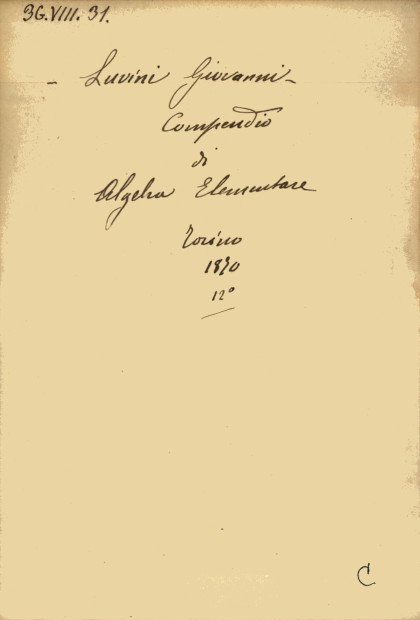 3G.VIII.31.
– Luvini Giovanni –
Compendio
di
Algebra Elementare
Torino
1870
12°
C